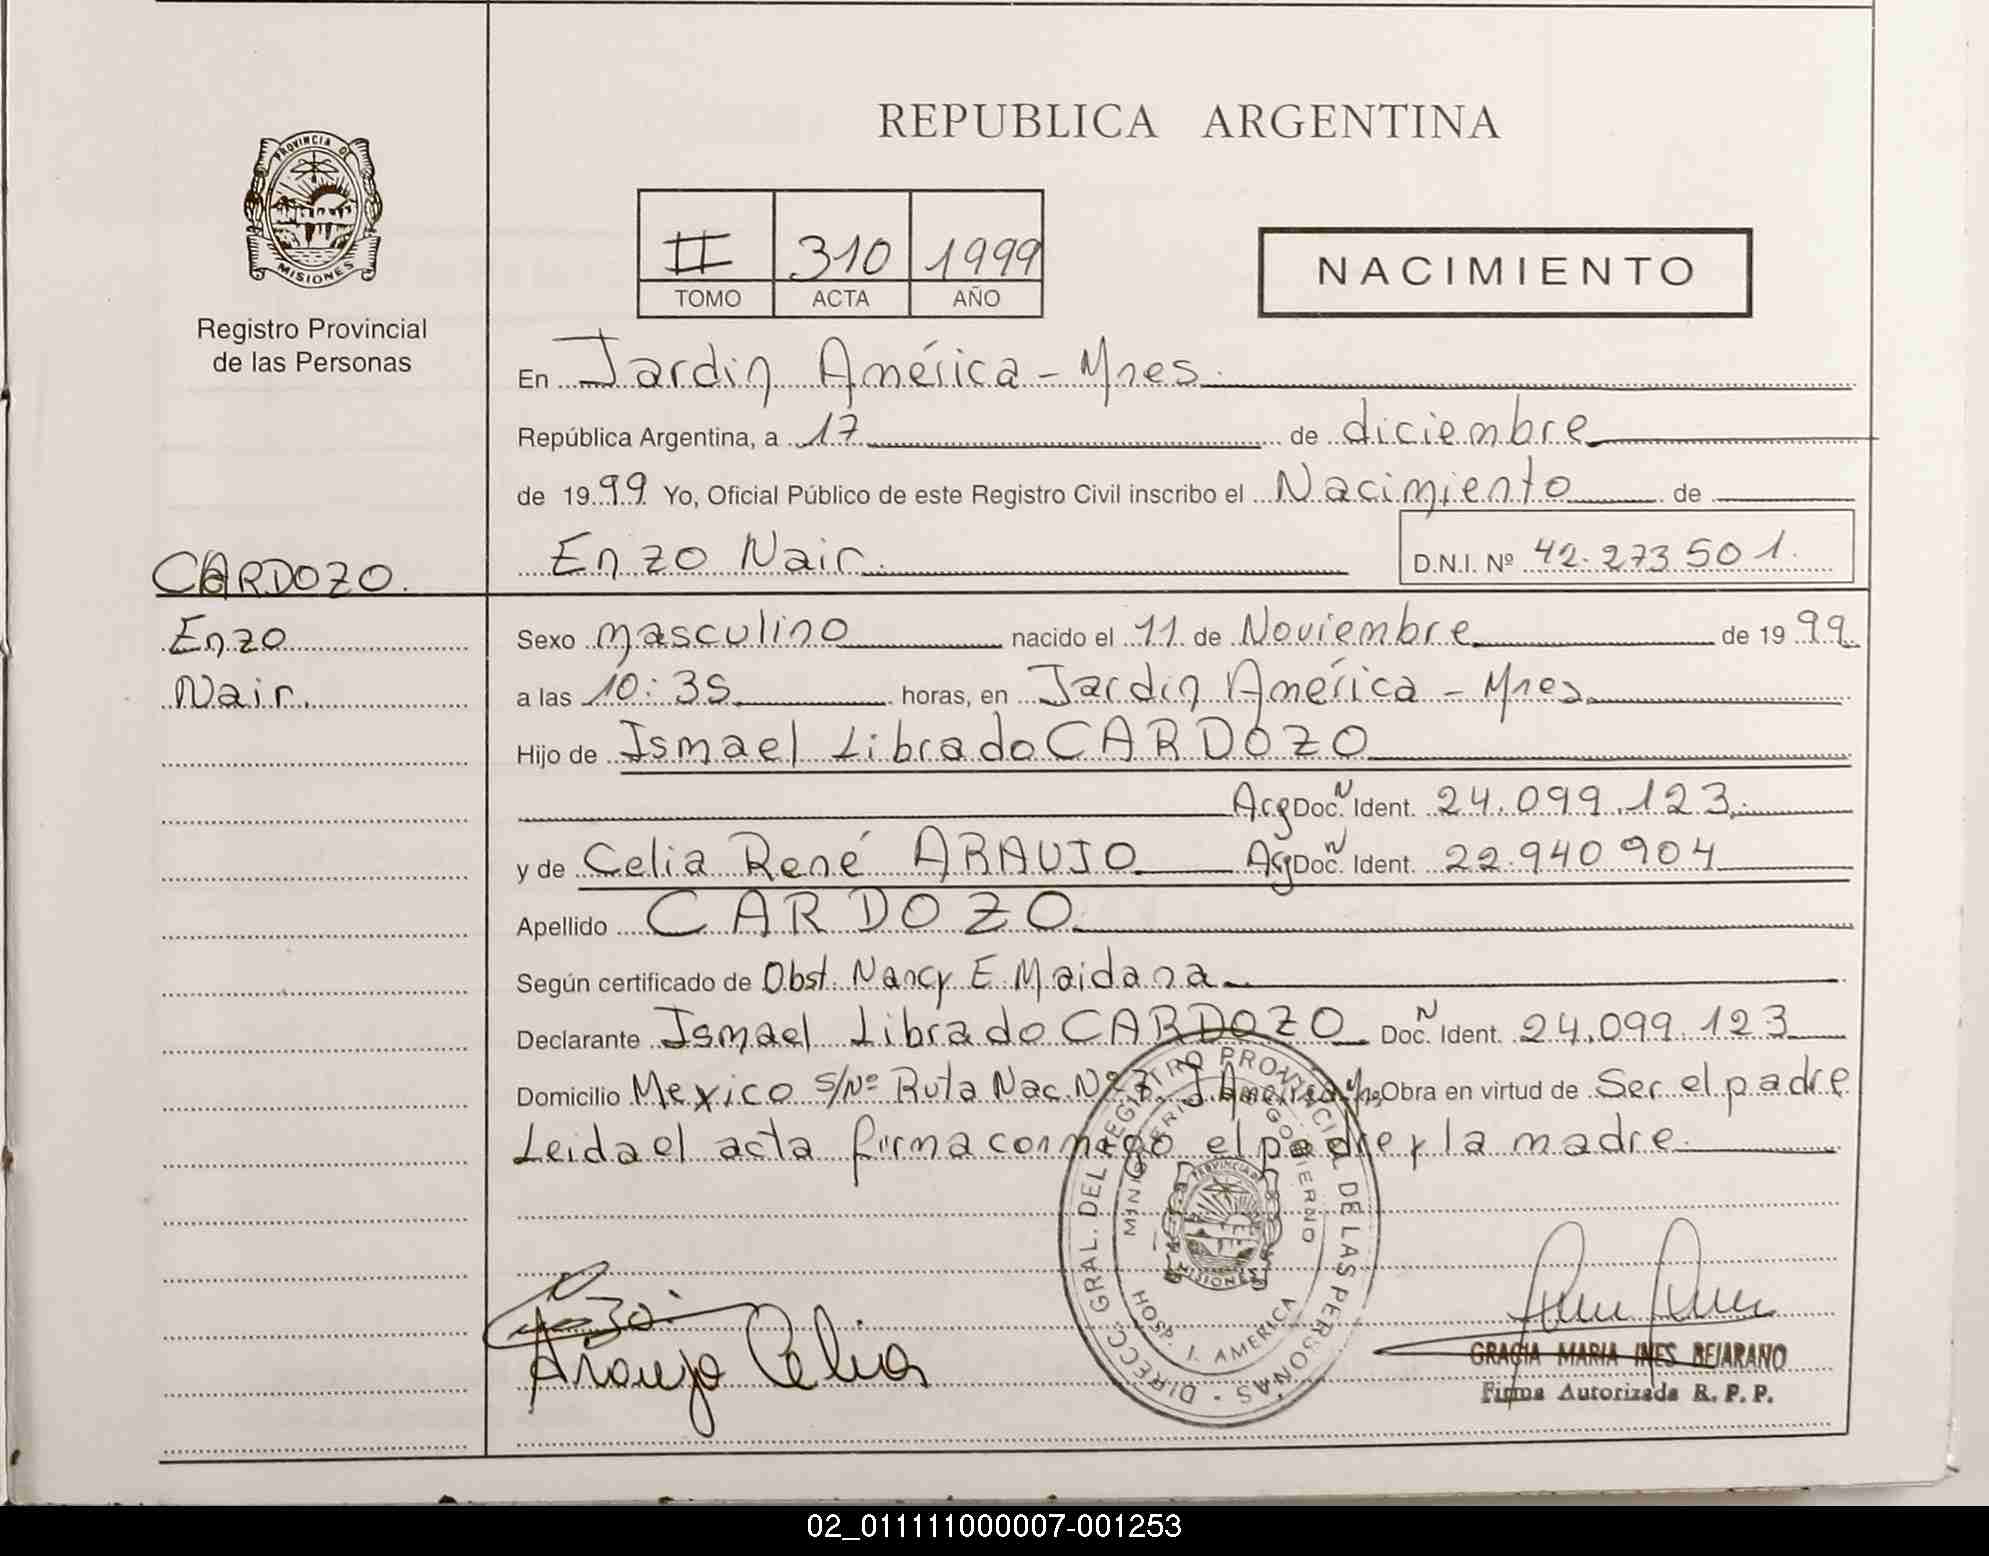 REPUBLICA ARGENTINA
PROVINCIA DE
MISIONES
Registro Provincial
de las Personas
II 310 1999
TOMO ACTA AÑO
NACIMIENTO
En Jardin América - Mnes.
República Argentina, a 17 de diciembre
de 1999 Yo, Oficial Público de este Registro Civil inscribo el Nacimiento de
Enzo Nair. D.N.I. Nº 42.273.501.
CARDOZO.
Enzo
Nair.
Sexo masculino nacido el 11 de Noviembre de 1999.
a las 10:35 horas, en Jardin América - Mnes.
Hijo de Ismael Librado CARDOZO
Arg Doc. N Ident. 24.099.123.
y de Celia René ARAUJO Arg Doc. N Ident. 22.940.904
Apellido CARDOZO
Según certificado de Obst. Nancy E. Maidana
Declarante Ismael Librado CARDOZO Doc. N Ident. 24.099.123
Domicilio Mexico S/Nº Ruta Nac. Nº 7 J. America Obra en virtud de Ser el padre
Leida el acta firma conmigo el padre y la madre.
DIRECC. GRAL. DEL REGISTRO PROVINCIAL DE LAS PERSONAS
MINISTERIO GOBIERNO
PROVINCIA
MISIONES
HOSP. J. AMERICA
Araujo Celia
GRACIA MARIA INES BEJARANO
Firma Autorizada R. P. P.
02_011111000007-001253